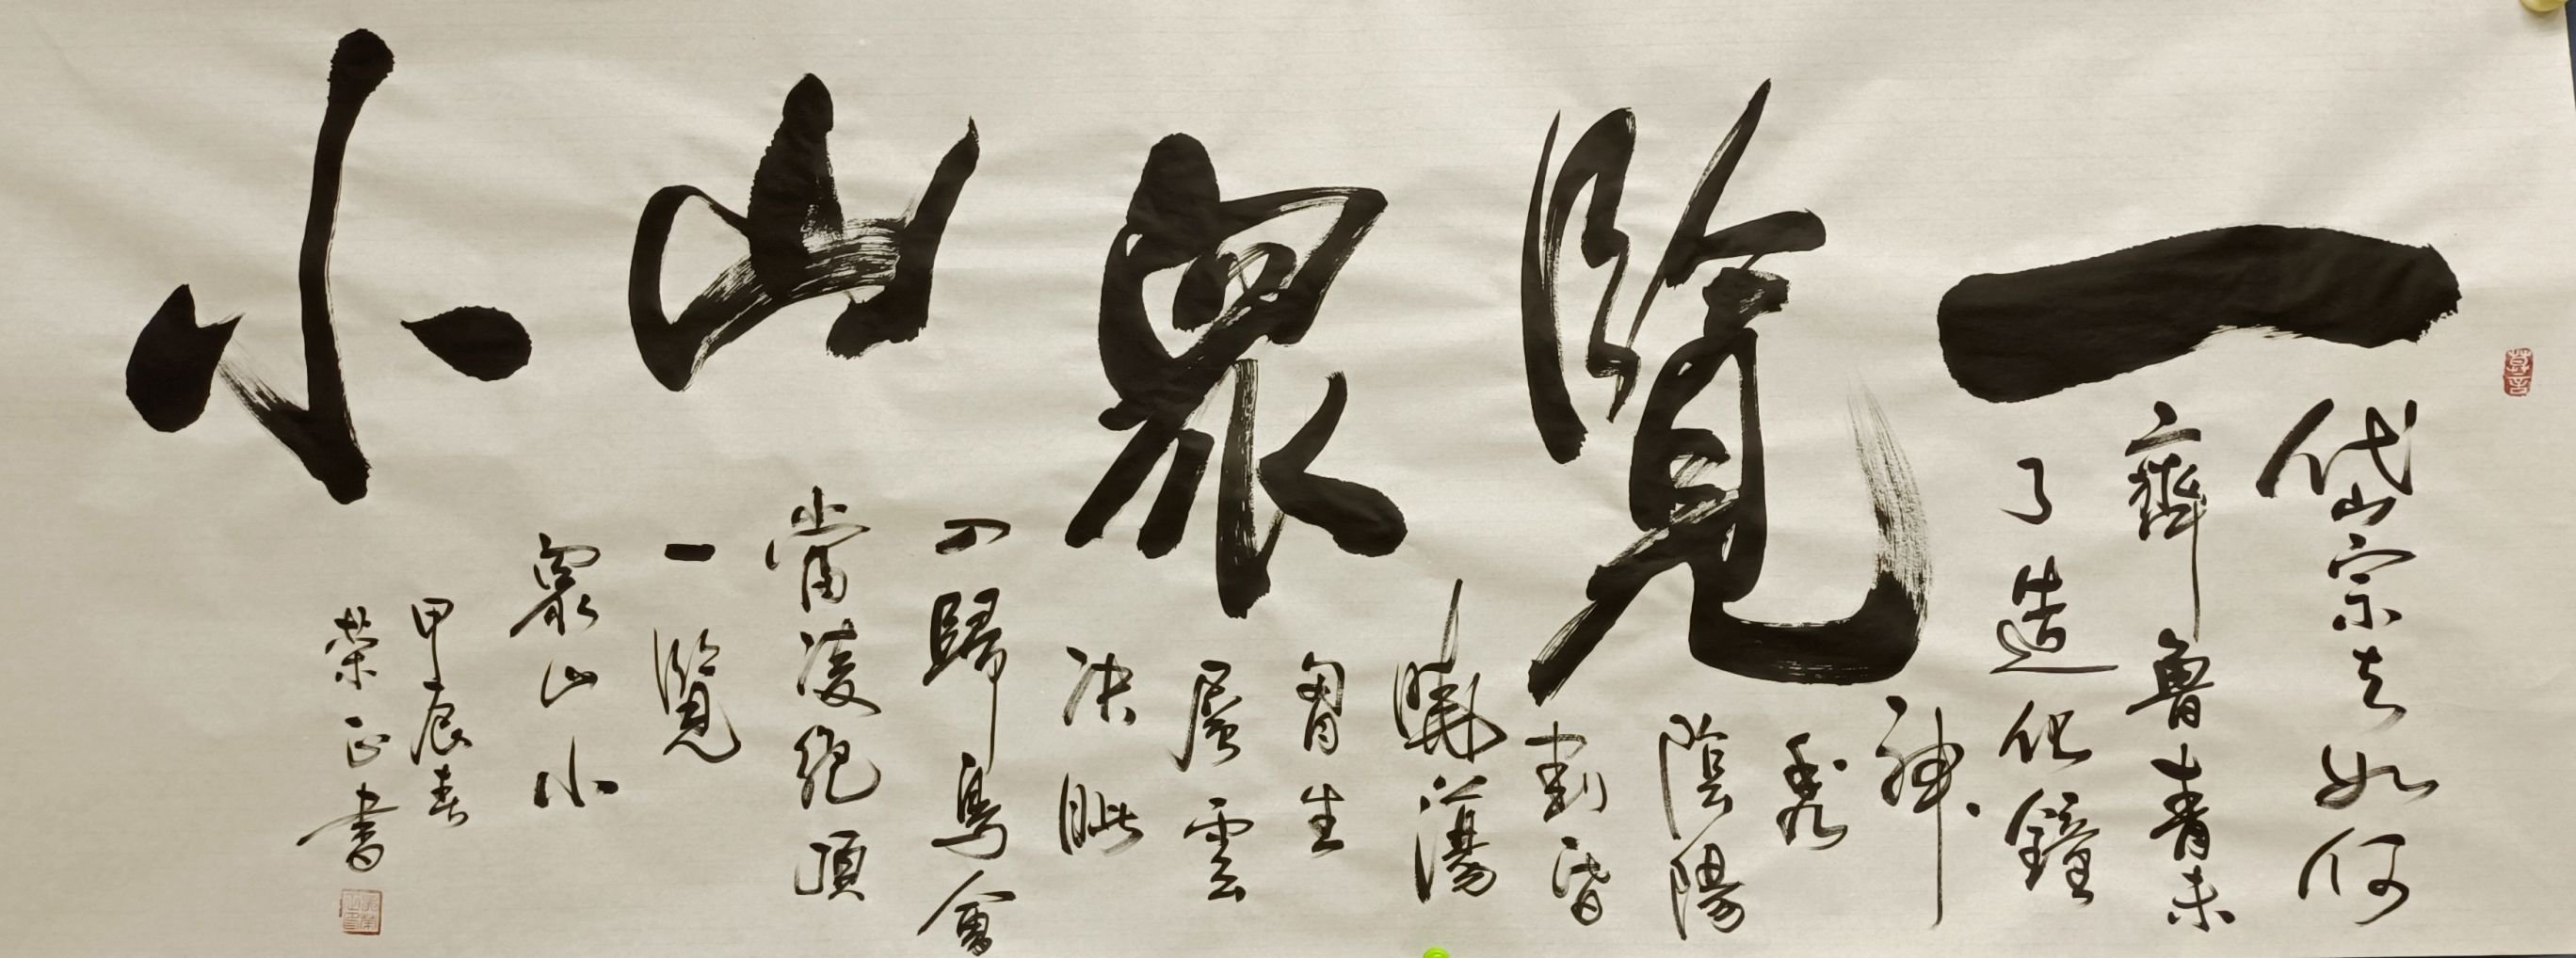 一覽衆山小
岱宗夫如何
齊魯青未
了造化鐘
神
秀
陰陽
割昏
曉蕩
胷生
層雲
决眥
入歸鳥會
當凌絕頂
一覽
衆山小
甲辰春
榮正書